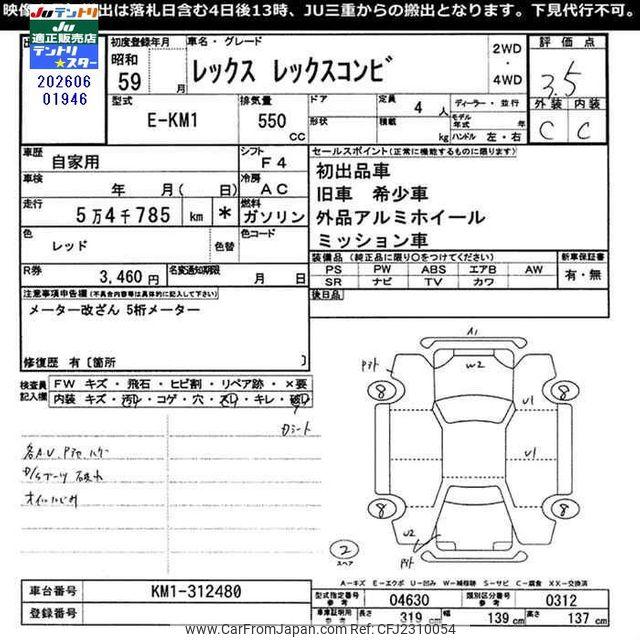 出は落札日含む4日後13時、JU三重からの搬出となります。下見代行不可。
JUテントリ
JU
適正販売店
テントリ
★スター
202606
01946
初度登録年月
昭和
59 月
車名・グレード
レックス レックスコンビ
2WD
・
4WD
評価点
3.5
外装 内装
C C
型式
E-KM1
排気量
550 CC
ドア
形状
定員
4 人
積載 kg
ディーラー・並行
モデル年式 年
ハンドル 左・右
車歴
自家用
シフト
F4
車検
年 月( 日)
冷房
AC
走行
5万4千785 km *
燃料
ガソリン
色
レッド
色替
色コード
R券
3,460円
名変通知期限
月 日
セールスポイント(正常に機能するものに限ります)
初出品車
旧車 希少車
外品アルミホイール
ミッション車
装備品(純正品に限り○をつけてください)
PS PW ABS エアB AW
SR ナビ TV カワ
新車保証書
有・無
後日品
注意事項申告欄(不具合内容等は具体的に記入して下さい)
メーター改ざん 5桁メーター
修復歴 有〔箇所 〕
検査員記入欄
FW キズ・飛石・ヒビ割・リペア跡・×要
内装 キズ・汚レ・コゲ・穴・スレ・キレ・破レ
オイルにじみ
A1
W2
8
8
U1
U1
8
8
U2
2
スペア
A-キズ E-エクボ U-凹み W-補修跡 S-サビ C-腐食 XX-交換済
車台番号
KM1-312480
登録番号
型式指定番号
参考
04630
類別区分番号
参考
0312
車庫証明用
参考
長さ
319 cm
幅
139 cm
高さ
137 cm
www.CarFromJapan.com - CFJ2310054